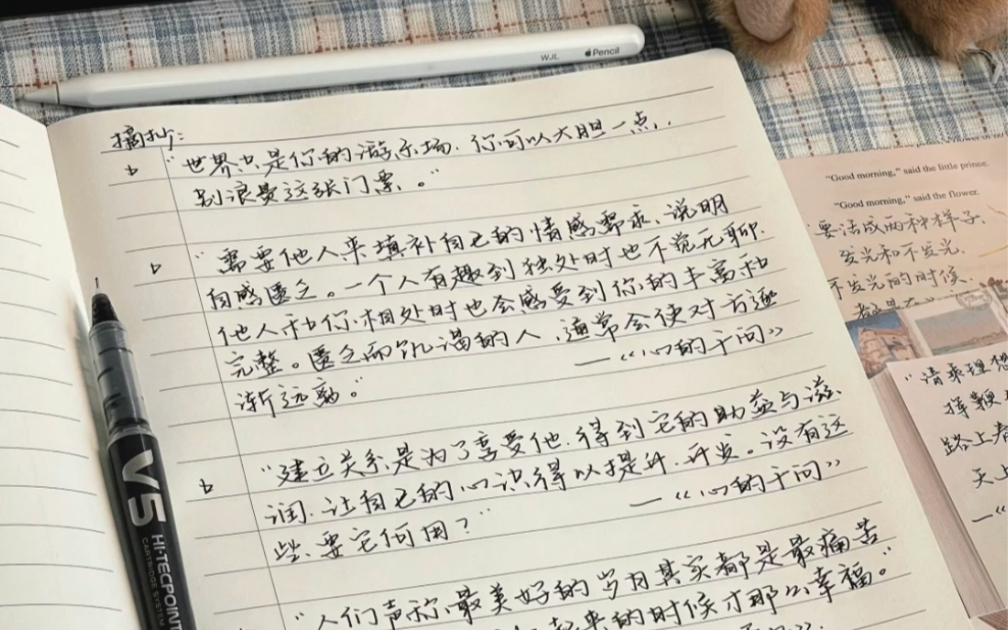 WJL Pencil
摘抄:
"世界只是你的游乐场.你可以大胆一点,
别浪费这张门票。"
"需要他人来填补自己的情感需求,说明
自感匮乏。一个人有趣到独处时也不觉无聊.
他人和你相处时也会感受到你的丰富和
完整。匮乏而饥渴的人,通常会使对方逐
渐远离。" —《心的千问》
"建立关系是为了享受他.得到它的助益与滋
润.让自己的心识得以提升.开发。没有这
些、要它何用?" —《心的千问》
"人们声称最美好的岁月其实都是最痛苦
起来的时候才那么幸福。"
V5
HI-TECPOINT
CARTRIDGE SYSTEM
"Good morning," said the little prince.
"Good morning," said the flower.
要活成两种样子.
发光和不发光.
不发光的时候.
"请乘理想
路上
天